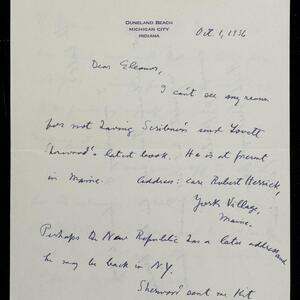 DUNELAND BEACH
MICHIGAN CITY
INDIANA
Oct. 1, 1936
Dear Eleanor,
I can't see any reason
for not having Scribners send Lovett
Sherwood's latest book. He is at present
in Maine. Address: care Robert Herrick,
York Village,
Maine.
Perhaps the New Republic has a later address and
he may be back in N.Y.
Sherwood sent me Kit